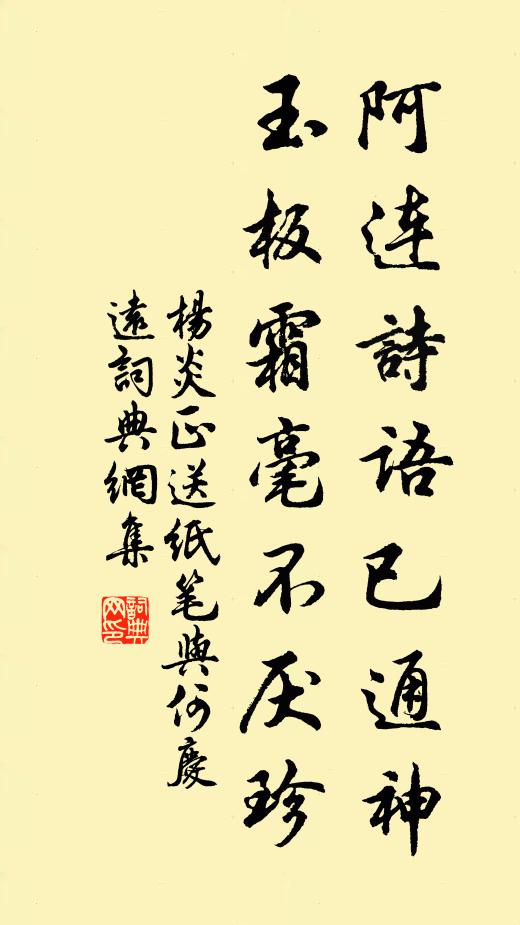 阿連詩語已通神
玉板霜毫不厌珍
楊炎正送紙笔與何慶
遠詞典網集
詞典
网印